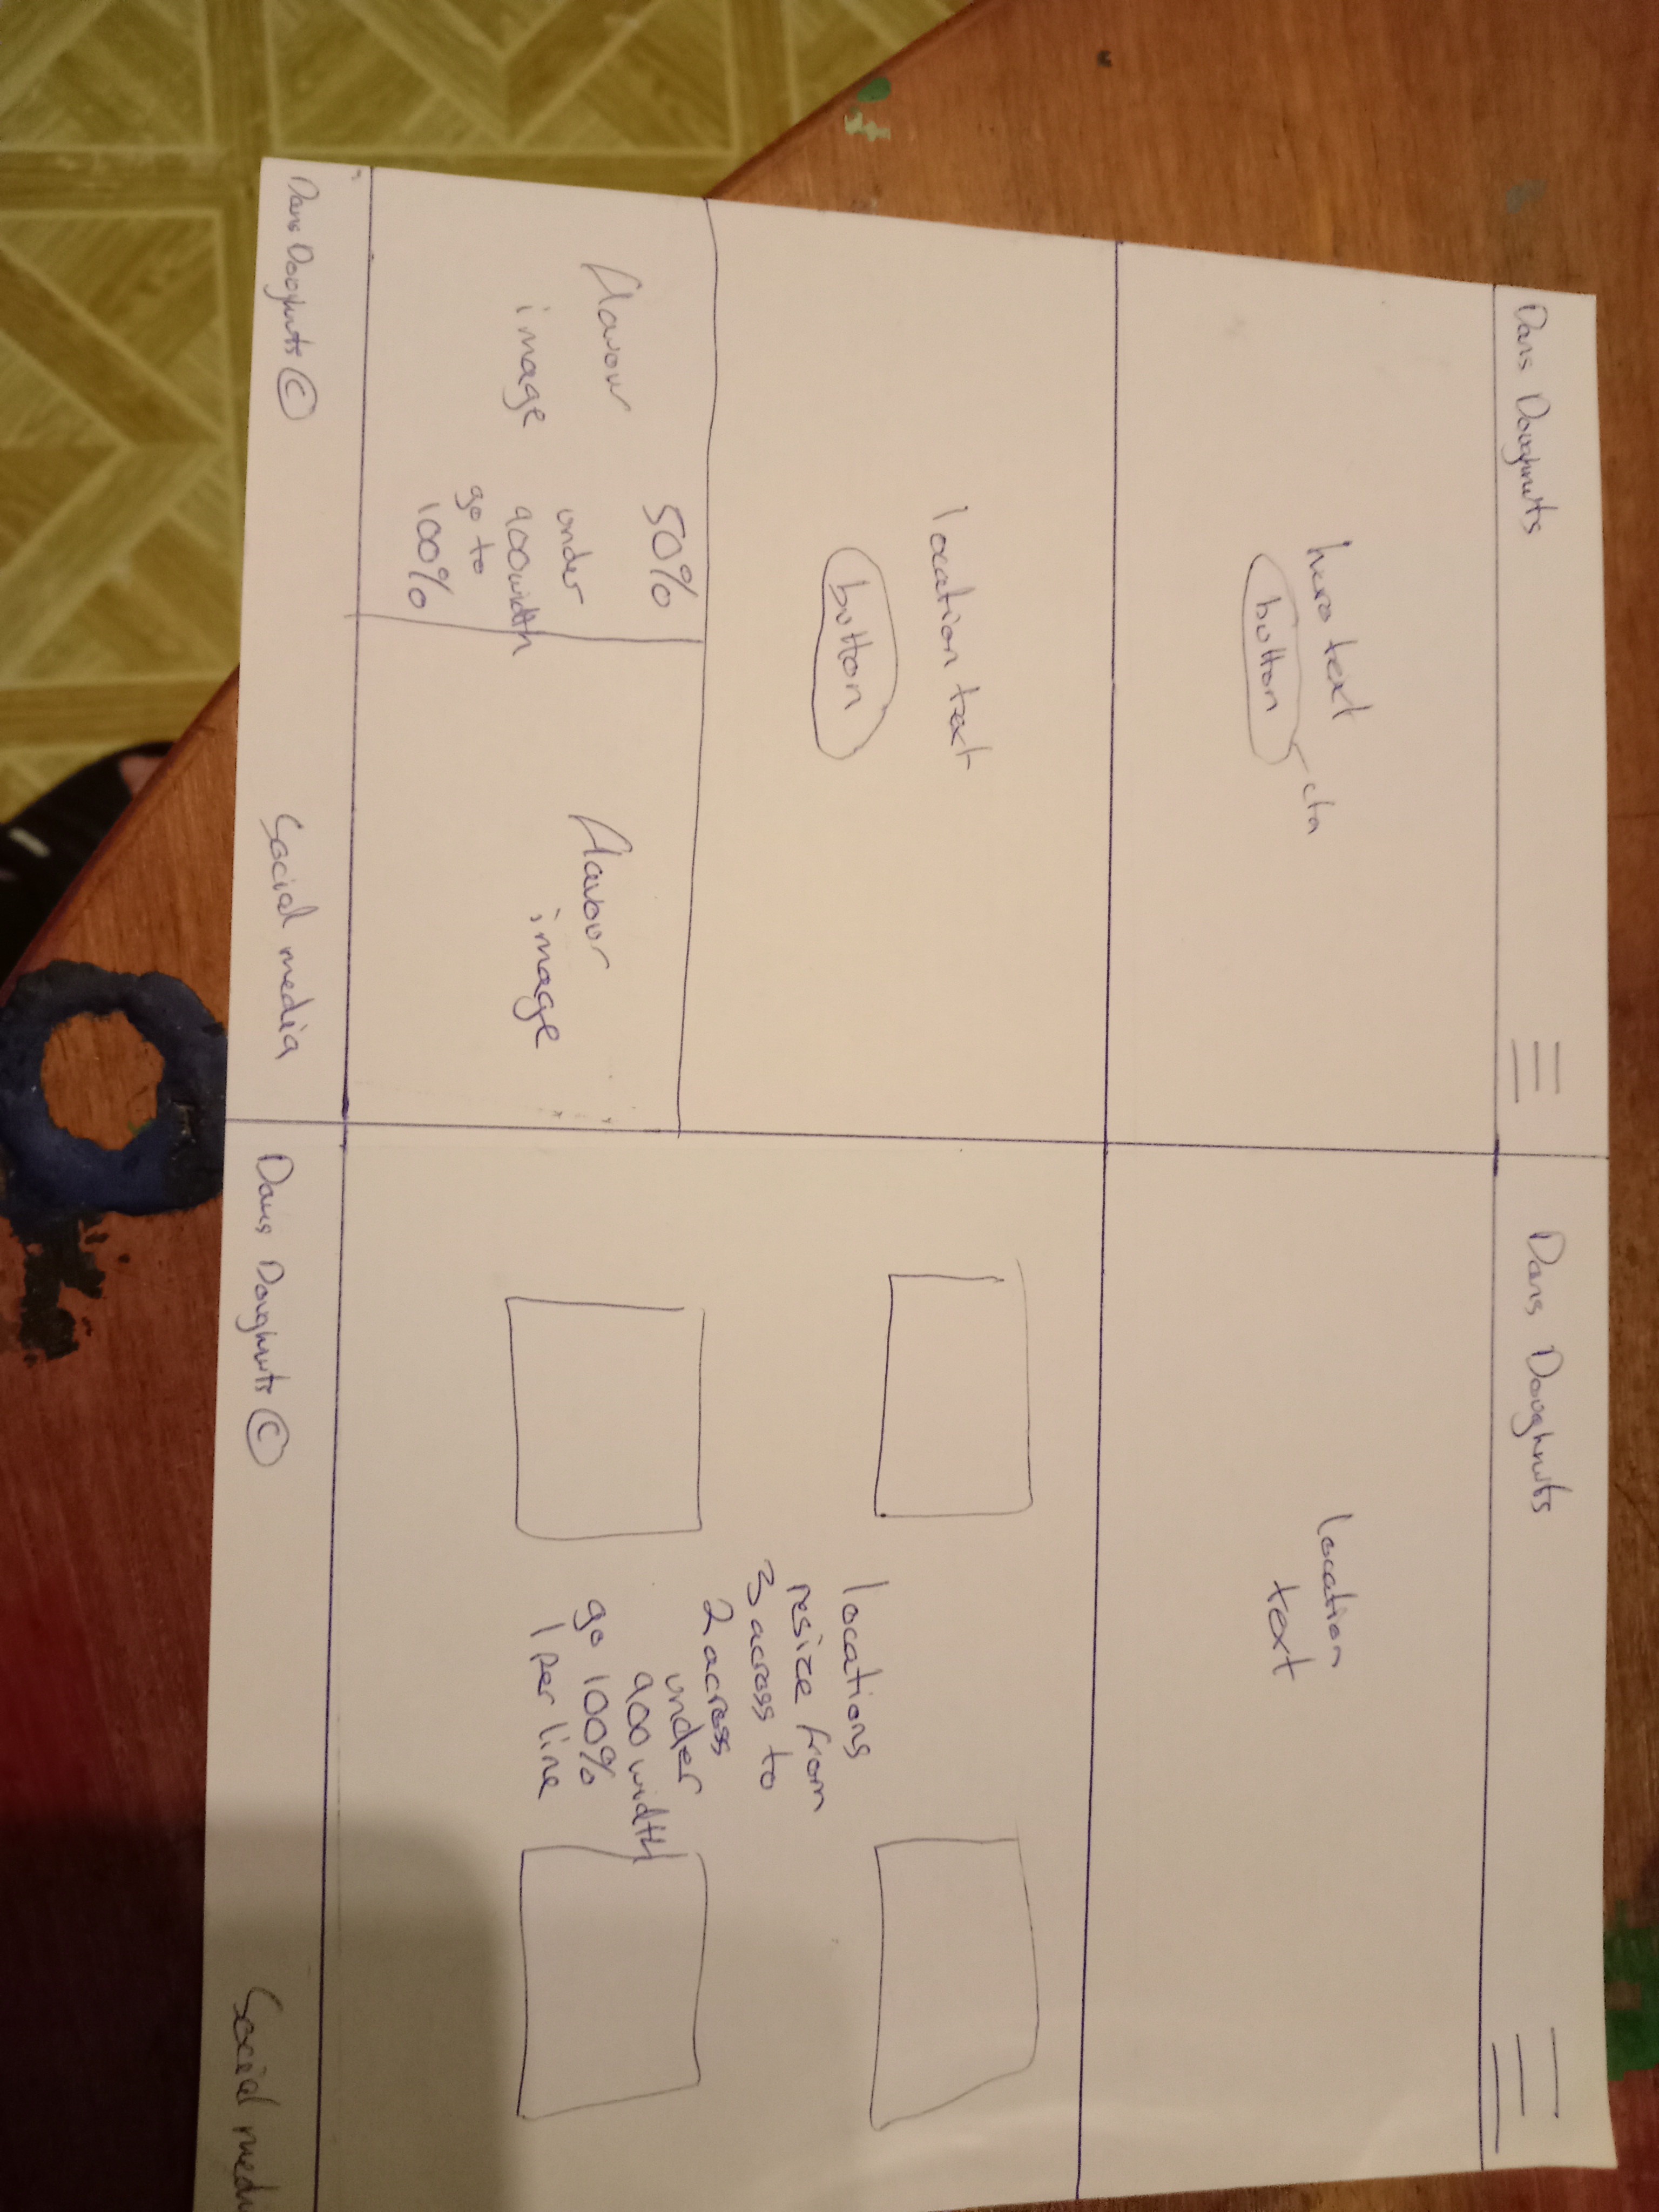 Dans Doughnuts
hero text
button
cta
location text
button
flavour
image
50%
under
900 width
go to
100%
flavour
image
Dans Doughnuts ©
Social media
Dans Doughnuts
location
text
locations
resize from
3 across to
2 across
under
900 width
go 100%
1 per line
Dans Doughnuts ©
Social media